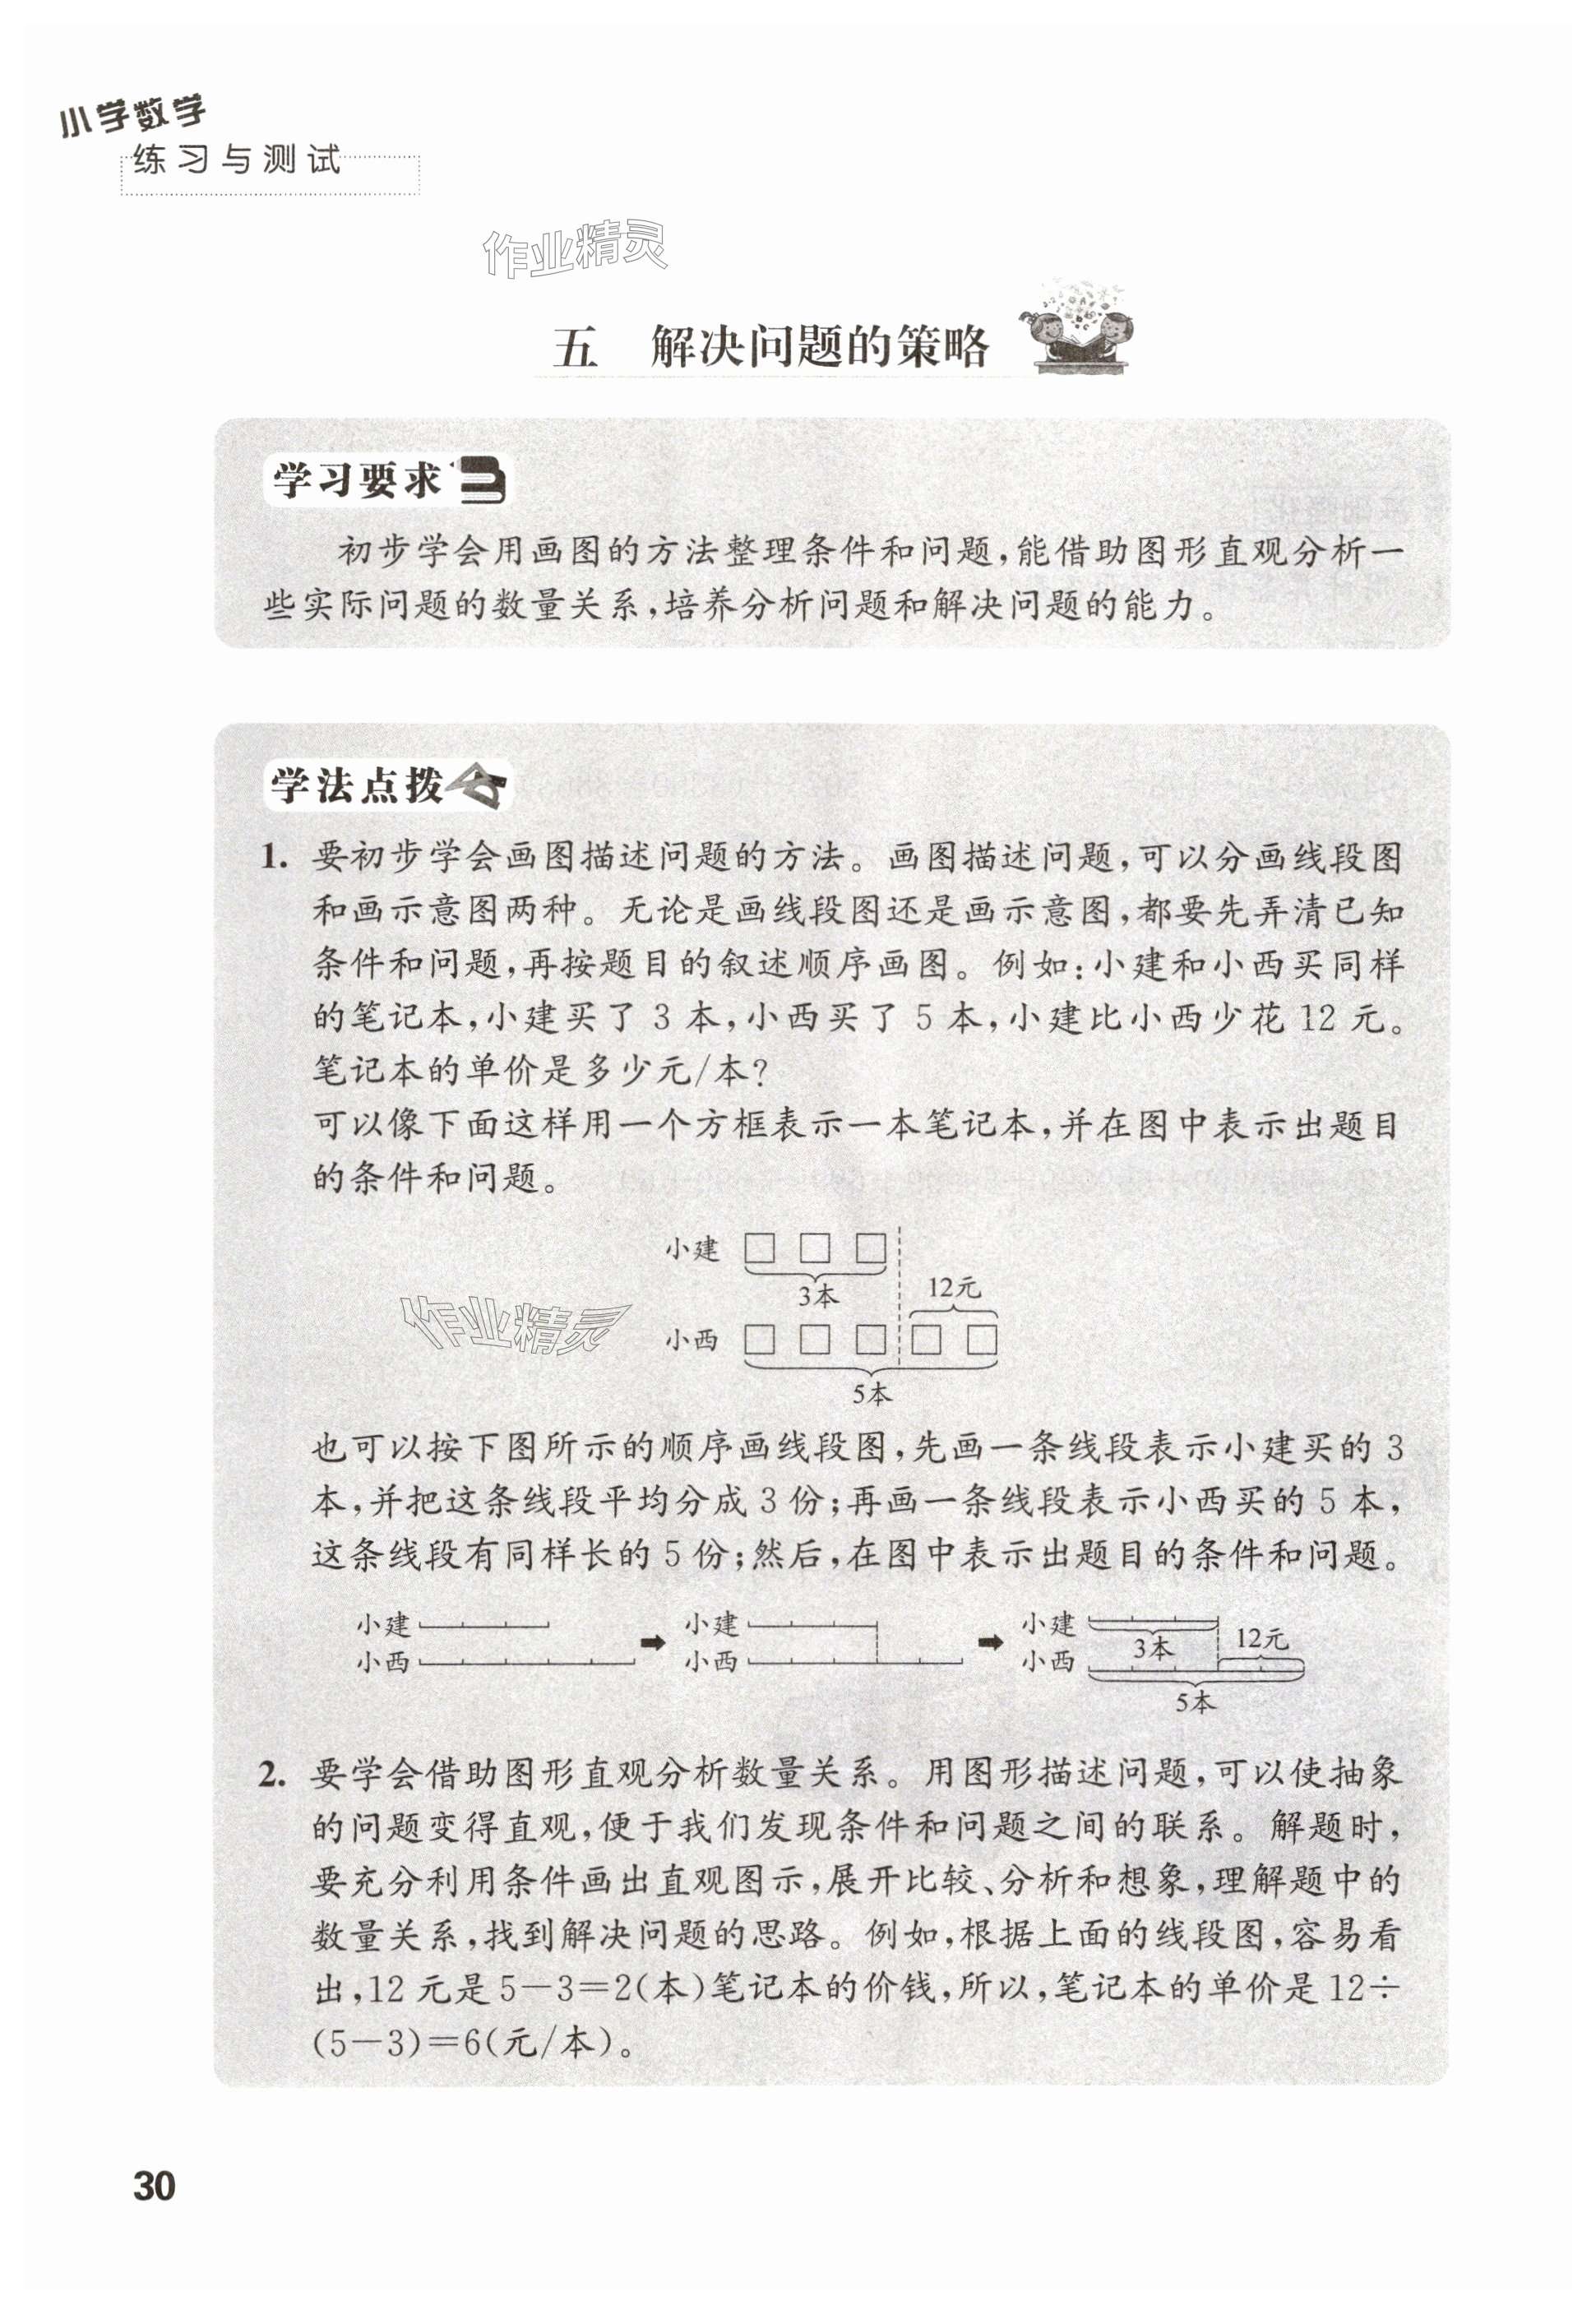 小学数学
练习与测试
作业精灵
五 解决问题的策略
学习要求
初步学会用画图的方法整理条件和问题,能借助图形直观分析一
些实际问题的数量关系,培养分析问题和解决问题的能力。
学法点拨
1. 要初步学会画图描述问题的方法。画图描述问题,可以分画线段图
和画示意图两种。无论是画线段图还是画示意图,都要先弄清已知
条件和问题,再按题目的叙述顺序画图。例如:小建和小西买同样
的笔记本,小建买了 3 本,小西买了 5 本,小建比小西少花 12 元。
笔记本的单价是多少元/本?
可以像下面这样用一个方框表示一本笔记本,并在图中表示出题目
的条件和问题。
小建
3本
12元
作业精灵
小西
5本
也可以按下图所示的顺序画线段图,先画一条线段表示小建买的 3
本,并把这条线段平均分成 3 份;再画一条线段表示小西买的 5 本,
这条线段有同样长的 5 份;然后,在图中表示出题目的条件和问题。
小建 小建 小建
3本 12元
小西 小西 小西
5本
2. 要学会借助图形直观分析数量关系。用图形描述问题,可以使抽象
的问题变得直观,便于我们发现条件和问题之间的联系。解题时,
要充分利用条件画出直观图示,展开比较、分析和想象,理解题中的
数量关系,找到解决问题的思路。例如,根据上面的线段图,容易看
出,12 元是 5-3=2(本)笔记本的价钱,所以,笔记本的单价是 12÷
(5-3)=6(元/本)。
30